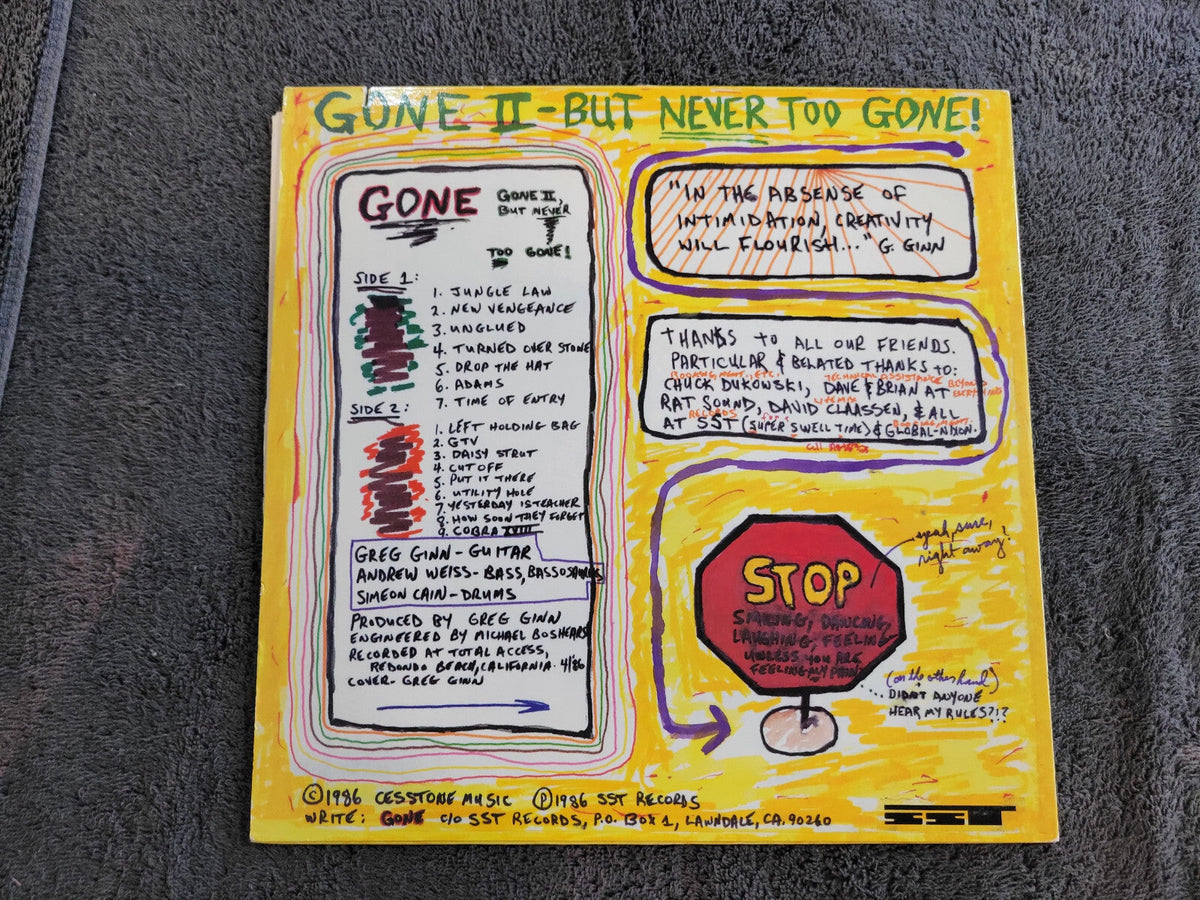 GONE II - BUT NEVER TOO GONE!
GONE
GONE II,
BUT NEVER
TOO GONE!
SIDE 1:
1. JUNGLE LAW
2. NEW VENGEANCE
3. UNGLUED
4. TURNED OVER STONE
5. DROP THE HAT
6. ADAMS
7. TIME OF ENTRY
SIDE 2:
1. LEFT HOLDING BAG
2. GTV
3. DAISY STRUT
4. CUT OFF
5. PUT IT THERE
6. UTILITY HOLE
7. YESTERDAY IS TEACHER
8. HOW SOON THEY FORGET
9. COBRA XVIII
GREG GINN - GUITAR
ANDREW WEISS - BASS, BASSOSAURUS
SIMEON CAIN - DRUMS
PRODUCED BY GREG GINN
ENGINEERED BY MICHAEL BOSHEARS
RECORDED AT TOTAL ACCESS,
REDONDO BEACH, CALIFORNIA. 4/86
COVER - GREG GINN
"IN THE ABSENSE OF
INTIMIDATION, CREATIVITY
WILL FLOURISH..." G. GINN
THANKS TO ALL OUR FRIENDS.
PARTICULAR & BELATED THANKS TO:
BOOKING, MGMT., ETC. TECHNICAL ASSISTANCE BEYOND
CHUCK DUKOWSKI, DAVE & BRIAN AT
RAT SOUND, DAVID CLAASSEN, & ALL
RECORDS for
AT SST (SUPER SWELL TIME) & GLOBAL-NIXON.
STOP
SMILING, DANCING,
LAUGHING, FEELING
UNLESS YOU ARE
FEELING MY PAIN
yeah, sure,
right away!
(on the other hand)
...DIDN'T ANYONE
HEAR MY RULES?!?
©1986 CESSTONE MUSIC ℗1986 SST RECORDS
WRITE: GONE C/O SST RECORDS, P.O. BOX 1, LAWNDALE, CA. 90260
SST